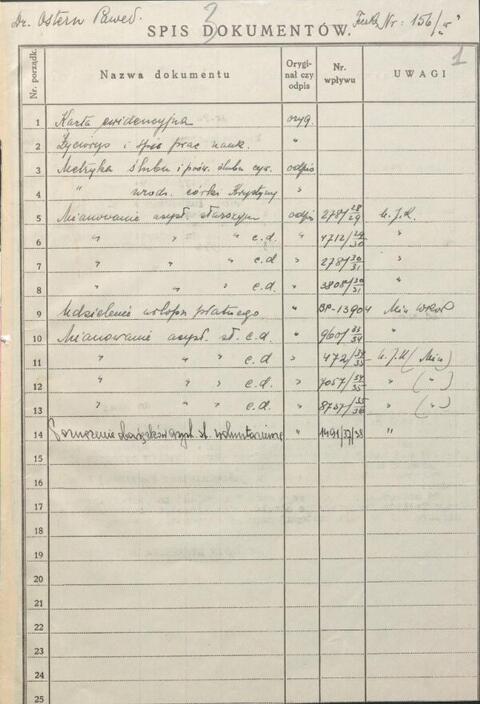 Dr. Ostern Paweł.
3
Nr: 156/"o"
SPIS DOKUMENTÓW.
1
Nr. porządk.
Nazwa dokumentu
Orygi-
nał czy
odpis
Nr.
wpływu
UWAGI
1 Karta ewidencyjna oryg.
2 Życiorys i spis prac nauk. "
3 Metryka ślubu i ślubu odpis
4 " urodz. córki Krystyny "
5 Mianowanie asyst. starszym odpis 278/28/29 U.J.K.
6 " " " c.d. " 4712/29/30 "
7 " " " c.d. " 278/30/31 "
8 " " " c.d. " 3808/30/31 "
9 Udzielenie urlopu płatnego. " BP-13904
10 Mianowanie asyst. st. c.d. " 9601/33/34 "
11 " " " c.d. " 472/34/35 U.J.K (Min)
12 " " " c.d. " 7057/34/35 " (")
13 " " " c.d. " 8757/35/36 " (")
14 " 1491/37/38 "
15
16
17
18
19
20
21
22
23
24
25